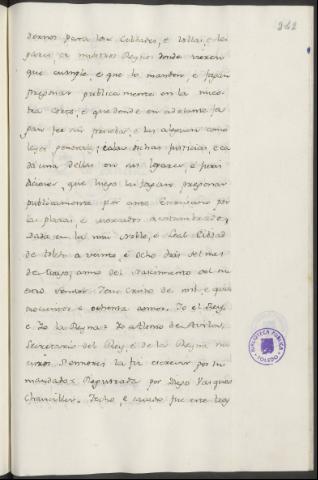 242
dernos para las Cibdades, e Villas, e lo-
gares, de nuestros Reynos donde vieren
que cumple, e que lo manden, e fagan
pregonar publicamente en la nues-
tra corte, e que dende en adelante fa-
gan por sus guardar, e las alguaciles como
leyes generales, e a las dichas justicias, e ca-
da una dellas en sus logares, e juris-
diciones, que luego las fagan pregonar
publicamente por ante Escrivano por
las plazas, e mercados acostumbrados,
dada en la mui Noble, e Leal Cibdad
de toledo a veinte, e ocho dias del mes
de Mayo, año del Nascimiento del nu-
estro Señor Jesu Christo de mil, e qua-
trocientos e ochenta años. Yo el Rey.
e Yo la Reyna. Yo Alfonso de Avila,
Secretario del Rey, e de la Reyna nu-
estros Señores la fiz escrevir por su
mandado. Registrada por Diego Vazquez
Chanciller. Fecho, e sacado fue este tras-
BIBLIOTECA PUBLICA
TOLEDO